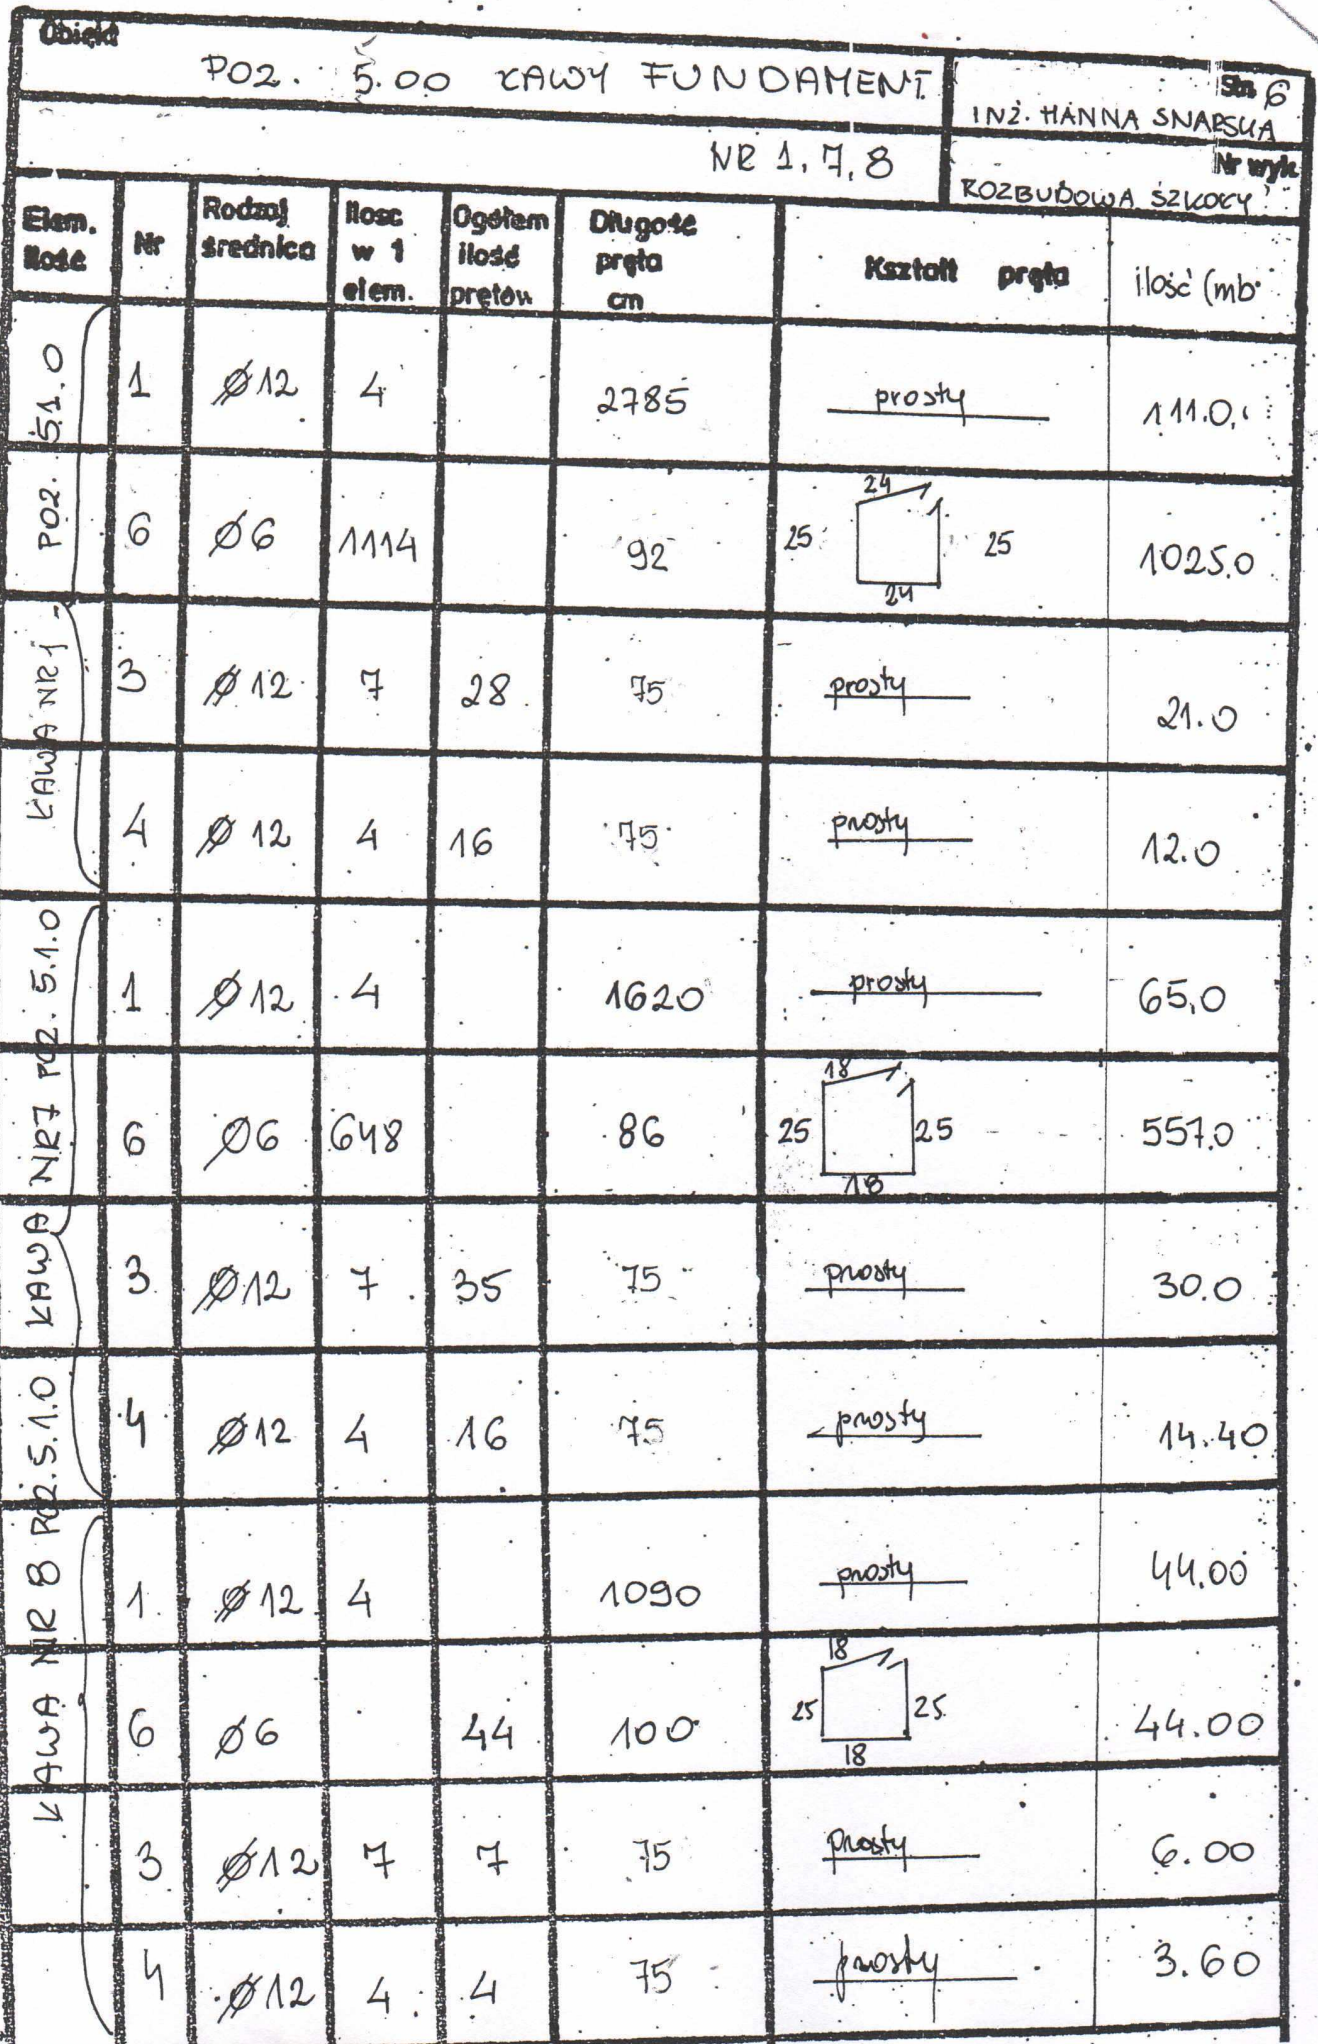 Obiekt
POZ. 5.00 ŁAWY FUNDAMENT.
Str. 6
INŻ. HANNA SNARSKA
NR 1, 7, 8
Nr wyk.
ROZBUDOWA SZKOŁY
Elem. ilość | Nr | Rodzaj średnica | Ilosc w 1 elem. | Ogółem ilość prętów | Długość pręta cm | Kształt pręta | ilość (mb
ŁAWA NR 1 - POZ. 5.1.0
1 | ø12 | 4 | 2785 | prosty | 111.0
6 | ø6 | 1114 | 92 | 24 25 25 24 | 1025.0
3 | ø12 | 7 | 28 | 75 | prosty | 21.0
4 | ø12 | 4 | 16 | 75 | prosty | 12.0
ŁAWA NR 7 POZ. 5.1.0
1 | ø12 | 4 | 1620 | prosty | 65,0
6 | ø6 | 648 | 86 | 18 25 25 18 | 557.0
3 | ø12 | 7 | 35 | 75 | prosty | 30.0
4 | ø12 | 4 | 16 | 75 | prosty | 14.40
ŁAWA NR 8 POZ. 5.1.0
1 | ø12 | 4 | 1090 | prosty | 44.00
6 | ø6 | 44 | 100 | 18 25 25 18 | 44.00
3 | ø12 | 7 | 7 | 75 | prosty | 6.00
4 | ø12 | 4 | 4 | 75 | prosty | 3.60